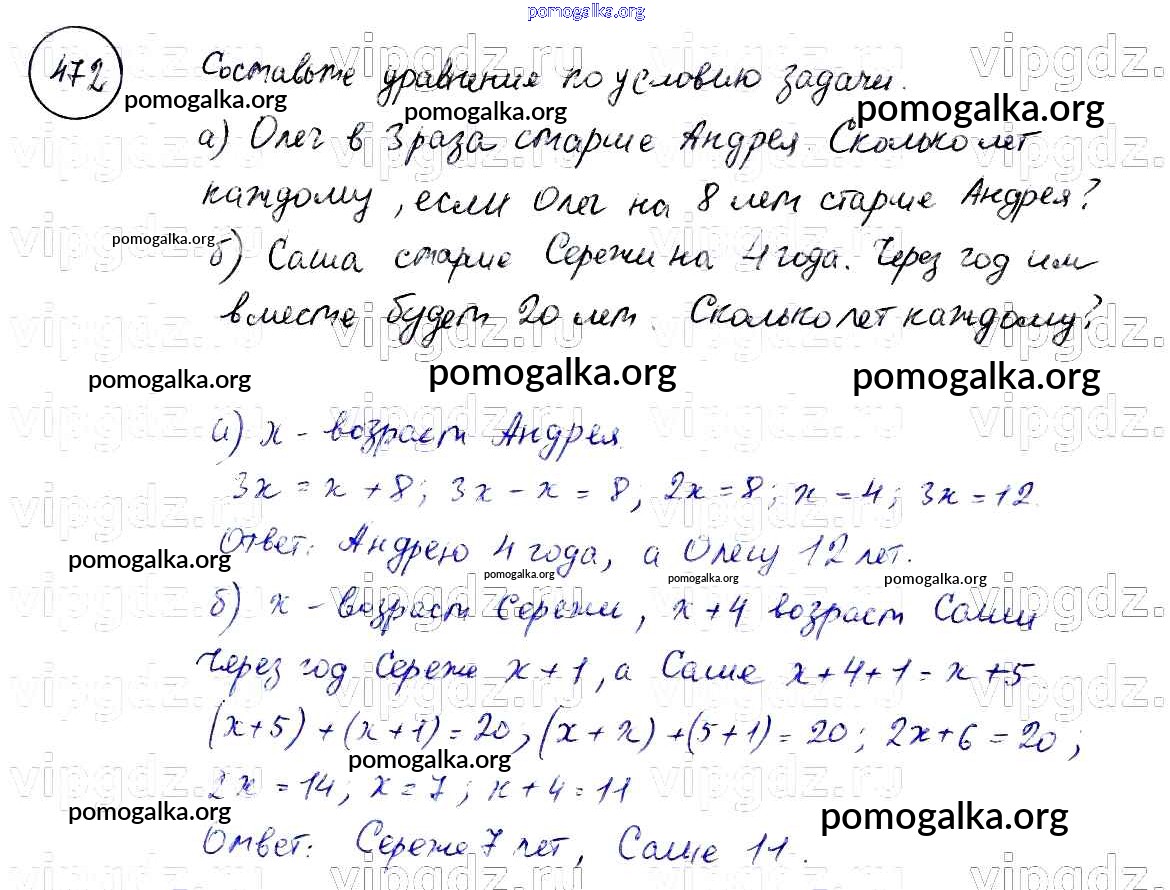 pomogalka.org
472 Составьте уравнение по условию задачи.
pomogalka.org pomogalka.org pomogalka.org
а) Олег в 3 раза старше Андрея. Сколько лет
каждому, если Олег на 8 лет старше Андрея?
pomogalka.org
б) Саша старше Сережи на 4 года. Через год им
вместе будет 20 лет. Сколько лет каждому?
pomogalka.org pomogalka.org pomogalka.org
а) x - возраст Андрея.
3x = x + 8; 3x - x = 8; 2x = 8; x = 4; 3x = 12.
Ответ: Андрею 4 года, а Олегу 12 лет.
pomogalka.org pomogalka.org pomogalka.org pomogalka.org
б) x - возраст Сережи, x+4 возраст Саши
Через год Сереже x + 1, а Саше x+4+1 = x+5
(x+5) + (x+1) = 20; (x + x) + (5+1) = 20; 2x+6 = 20;
pomogalka.org
2x = 14; x = 7; x + 4 = 11
pomogalka.org pomogalka.org
Ответ: Сереже 7 лет, Саше 11.
vipgdz.ru